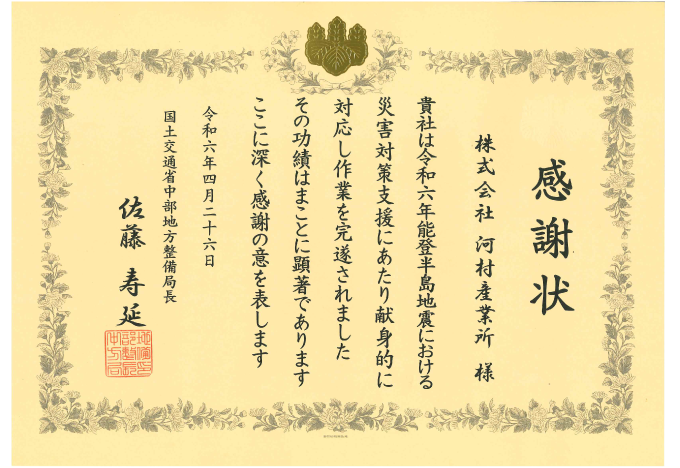 感謝状
株式会社 河村産業所 様
貴社は令和六年能登半島地震における
災害対策支援にあたり献身的に
対応し作業を完遂されました
その功績はまことに顕著であります
ここに深く感謝の意を表します
令和六年四月二十六日
国土交通省中部地方整備局長
佐藤 寿延